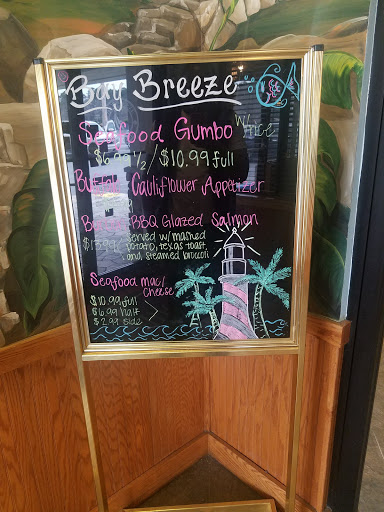 Bay Breeze
Seafood Gumbo w/rice
$6.99 1/2 // $10.99 full
Cauliflower Appetizer
BBQ Glazed Salmon
served w/ mashed
potato, texas toast,
and steamed broccoli
Seafood mac/
cheese
$10.99 full
$6.99 half
$2.99 side